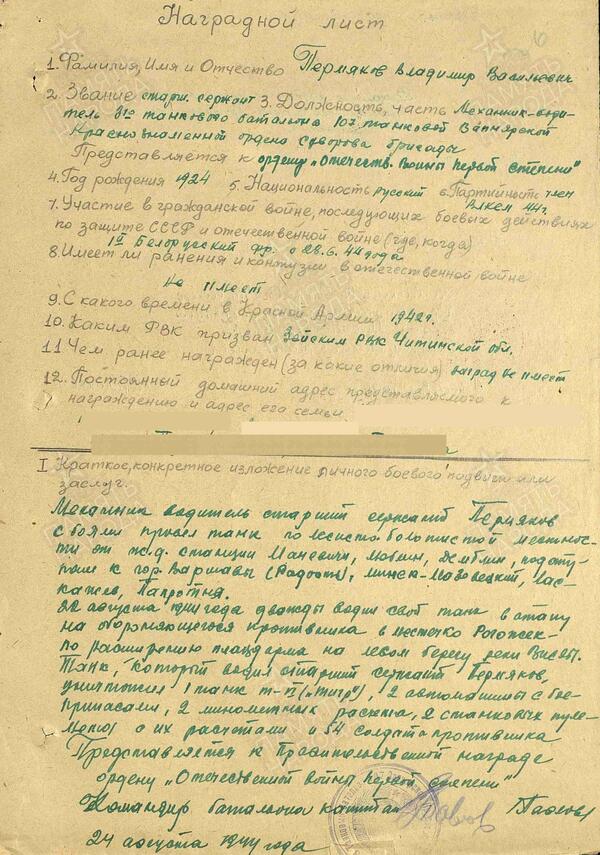 Наградной лист
1. Фамилия, Имя и Отчество Пермяков Владимир Васильевич
2. Звание старш. сержант 3. Должность, часть Механик-води-
тель 3го танкового батальона 107 танковой Вапнярской
Краснознаменной ордена Суворова бригады
Представляется к ордену „Отечеств. Войны первой степени"
4. Год рождения 1924 5. Национальность русский 6. Партийность член
ВЛКСМ 44г.
7. Участие в гражданской войне, последующих боевых действиях
по защите СССР и отечественной войне (где, когда)
1й Белорусский фр. с 28.6.44 года
8. Имеет ли ранения и контузии в отечественной войне
Не имеет
9. С какого времени в Красной Армии 1942г.
10. Каким РВК призван Зейским РВК Читинской обл.
11 Чем ранее награжден (за какие отличия) наград не имеет
12. Постоянный домашний адрес представляемого к
награждению и адрес его семьи
I Краткое, конкретное изложение личного боевого подвига или
заслуг.
Механик водитель старший сержант Пермяков
с боями провел танк по лесисто болотистой местнос-
ти от ж.д. станции Маневичи, Люблин, Демблин, подсту-
пами к гор. Варшавы (Радость), Минск-Мазовецкий,
22 августа 1944 года дважды водил свой танк в атаку
на обороняющегося противника в местечко
по расширению плацдарма на левом берегу реки Висла.
Танк, который водил старший сержант Пермяков,
уничтожил 1 танк Т-VI („Тигр"), 2 автомашины с бое-
припасами, 2 минометных расчета, 2 станковых пуле-
мета с их расчетами и 54 солдата противника
Представляется к Правительственной награде
ордену „Отечественной война первой степени"
Командир батальона капитан Павлов
24 августа 1944 года